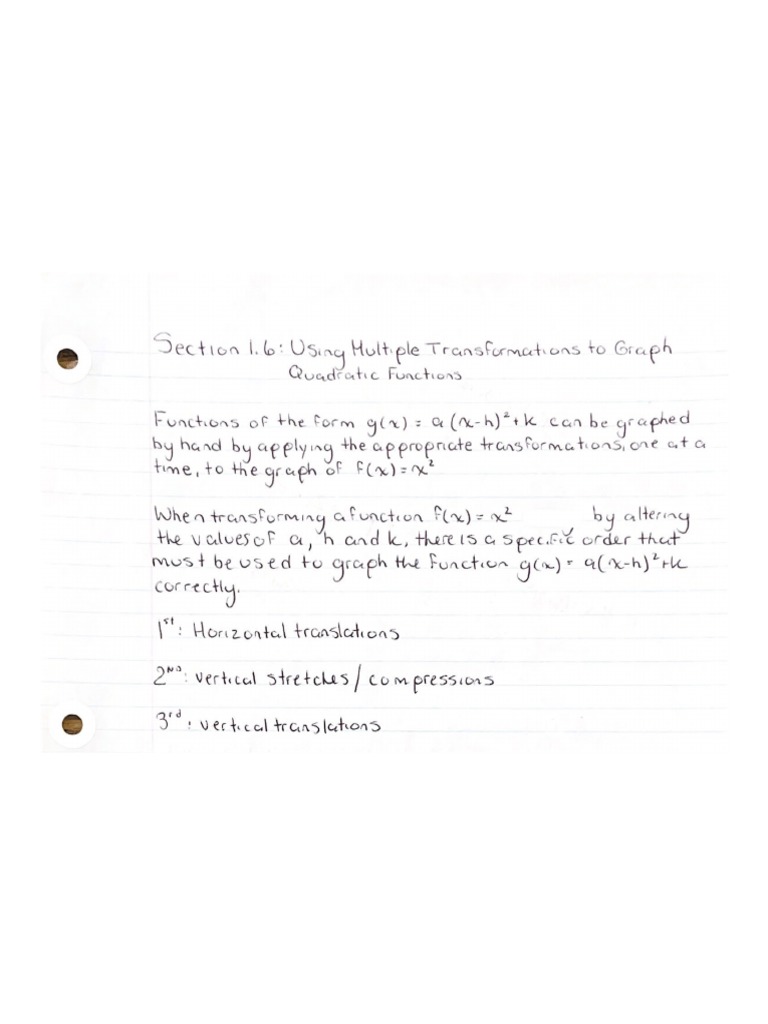 Section 1.6: Using Multiple Transformations to Graph
Quadratic Functions
Functions of the form g(x) = a(x-h)²+k can be graphed
by hand by applying the appropriate transformations, one at a
time, to the graph of f(x)=x²
When transforming a function f(x)=x² by altering
the values of a, h and k, there is a specific order that
must be used to graph the function g(x) = a(x-h)²+k
correctly.
1st: Horizontal translations
2ND: vertical stretches/compressions
3rd: vertical translations